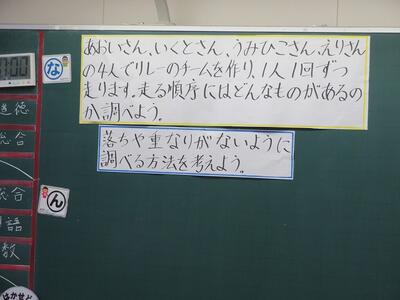 あらいさん、いくとさん、うみひこさん、えりさん
の4人でリレーのチームを作り、1人1回ずつ
走ります。走る順序にはどんなものがあるの
か調べよう。
落ちや重なりがないように
調べる方法を考えよう。
な
ん
:00
道徳
総合
総合
語
数